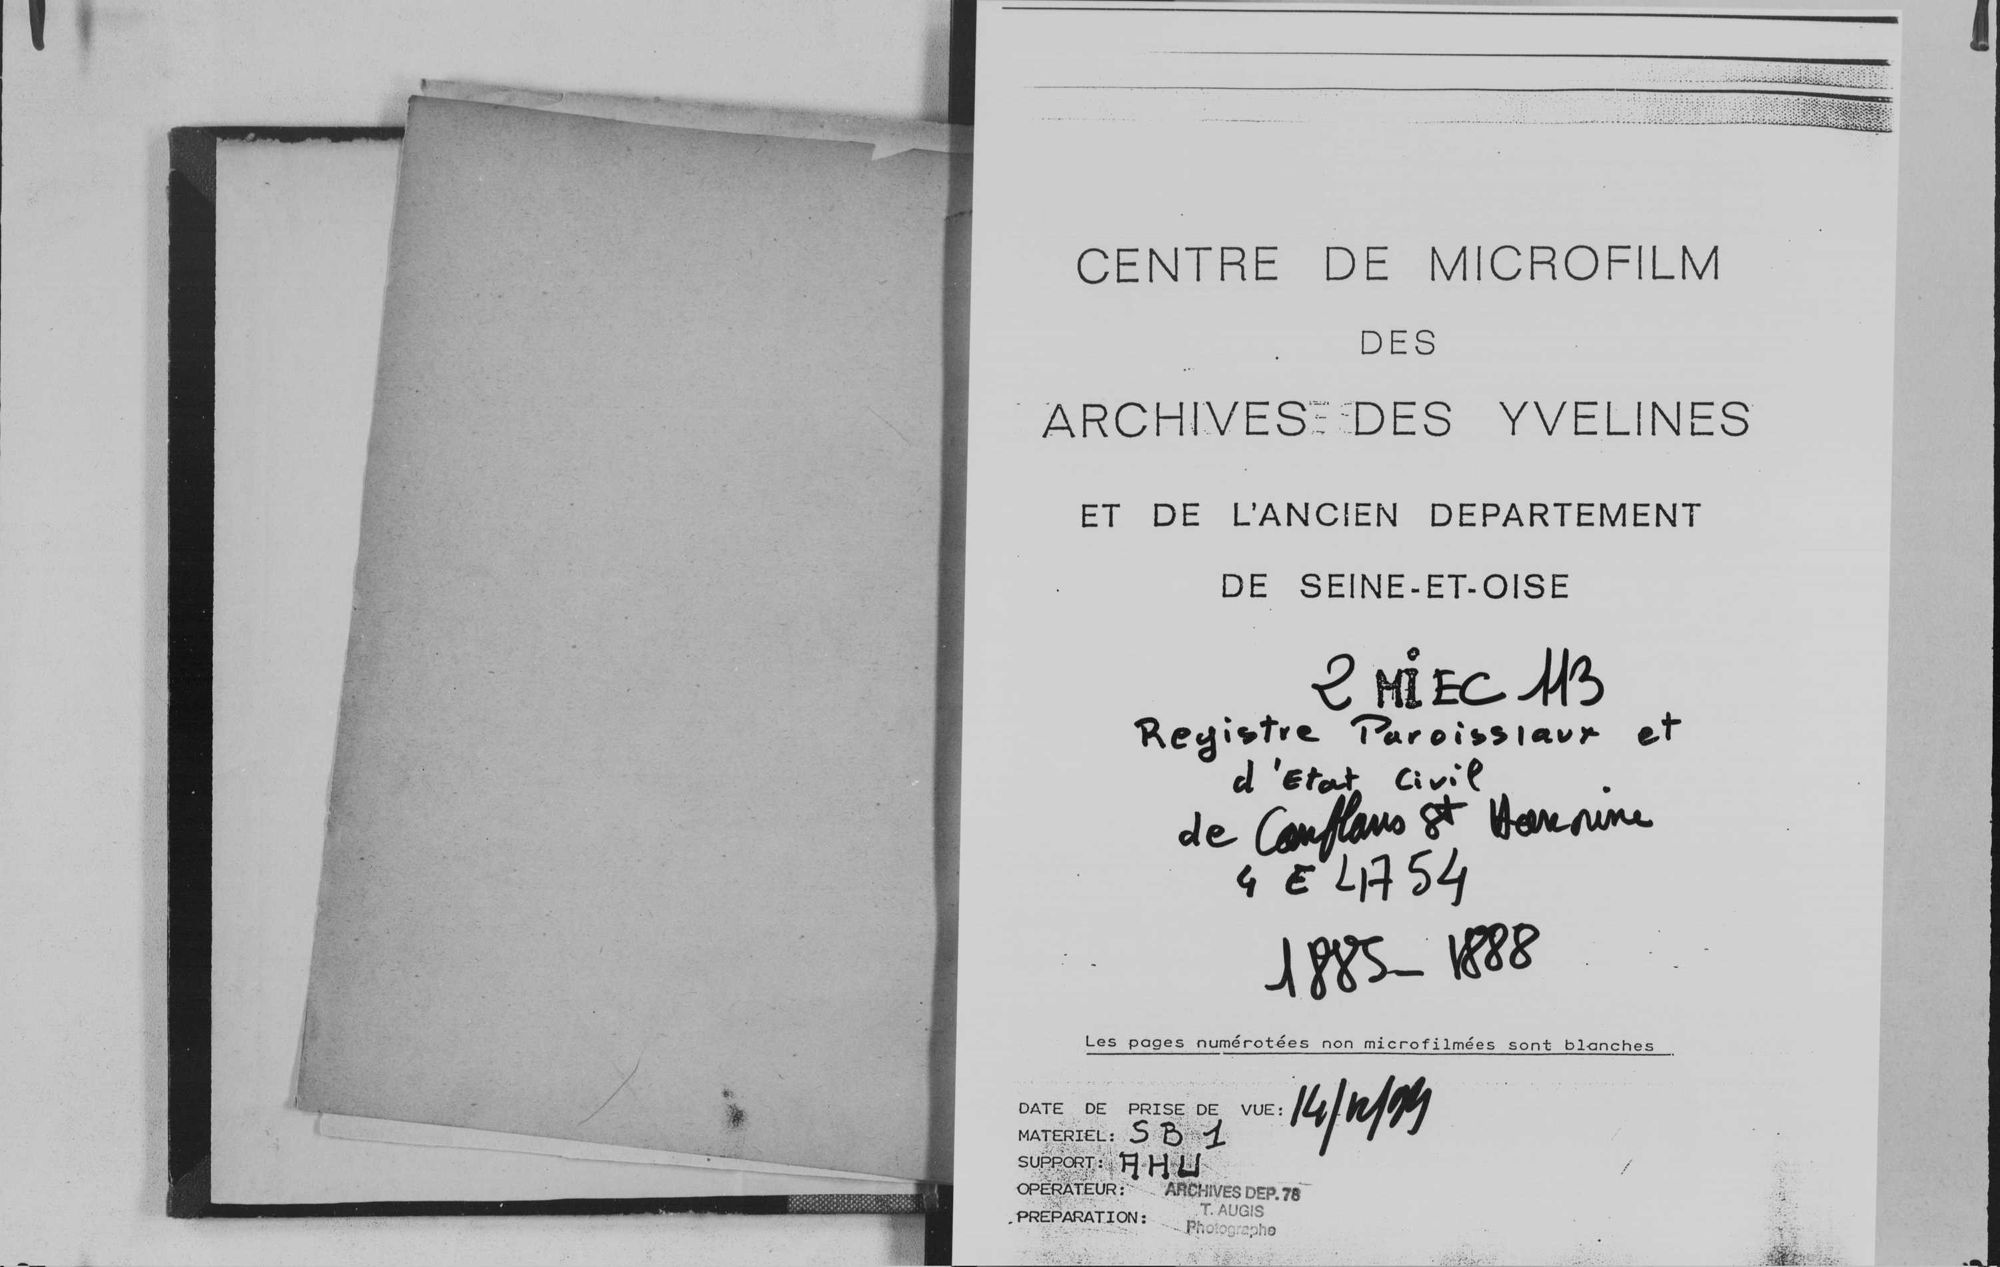 CENTRE DE MICROFILM
DES
ARCHIVES DES YVELINES
ET DE L'ANCIEN DEPARTEMENT
DE SEINE-ET-OISE
2 Mi EC 113
Registre Paroissiaux et
d'Etat Civil
de Conflans St Honorine
4 E 4754
1885_ 1888
Les pages numérotées non microfilmées sont blanches
DATE DE PRISE DE VUE:
MATERIEL: SB 1
SUPPORT: AHU
OPERATEUR: ARCHIVES DEP. 78
T. AUGIS
PREPARATION:
Photographe